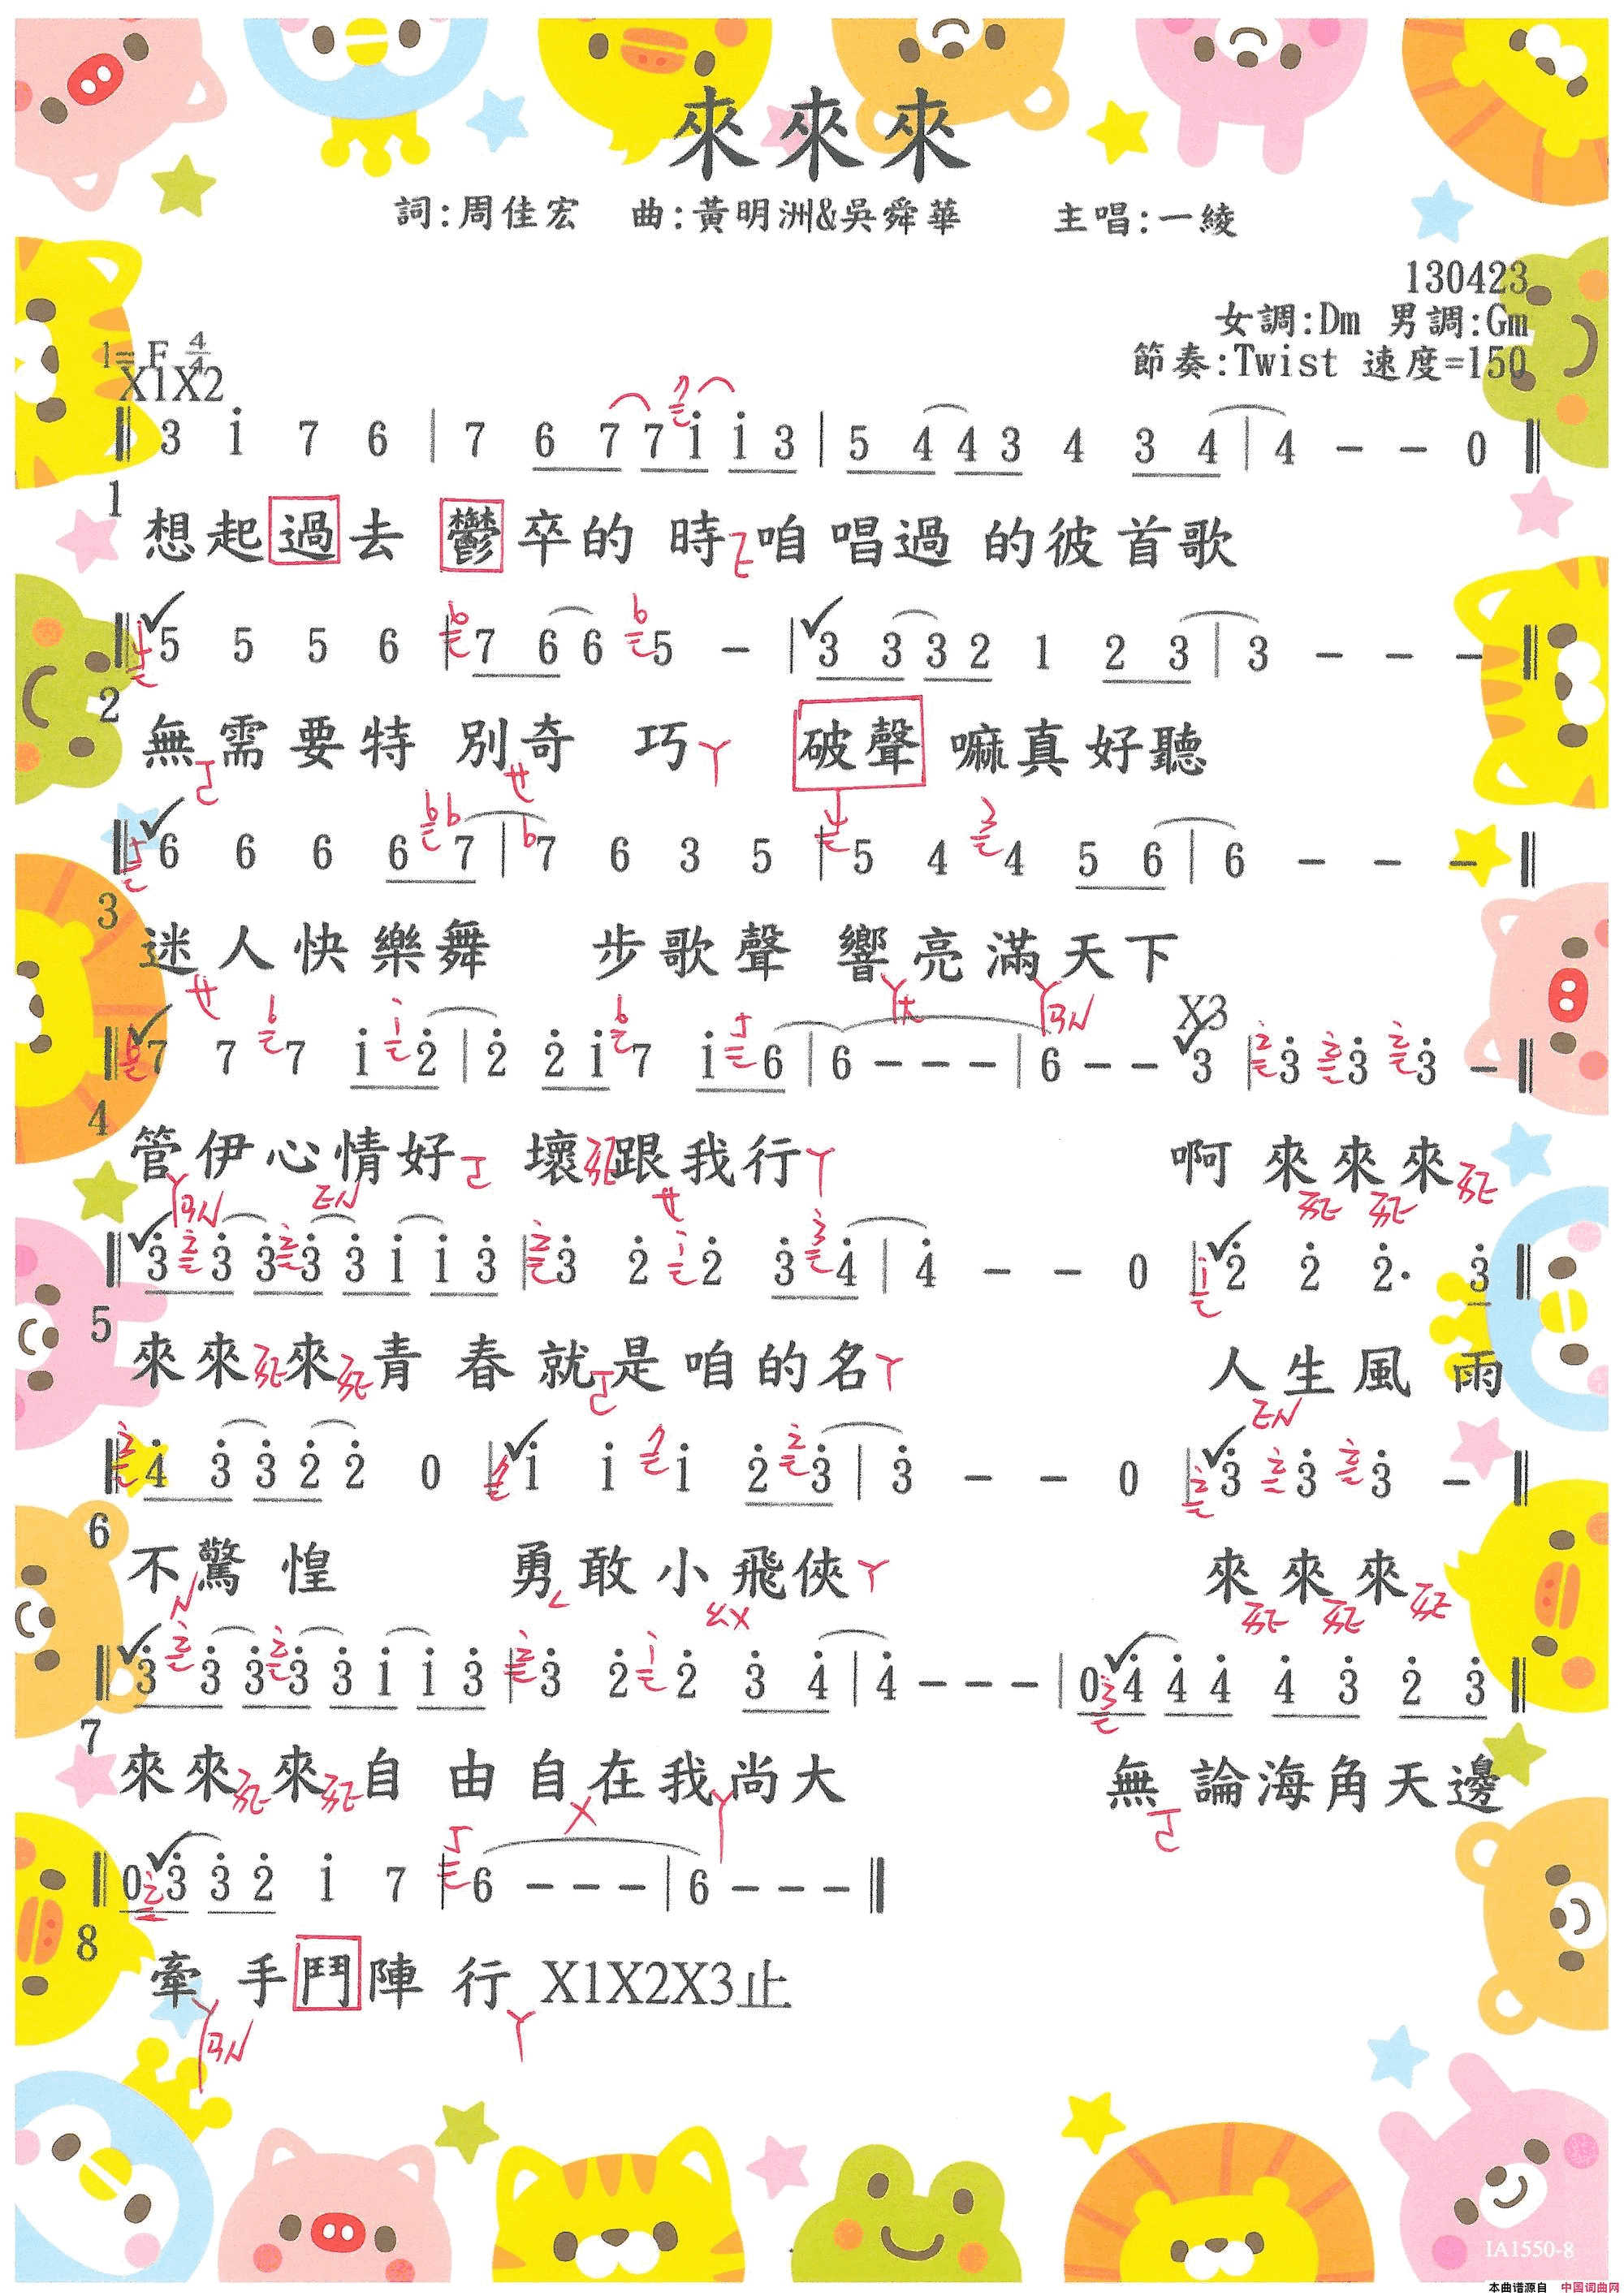 來來來
詞:周佳宏 曲:黃明洲&吳舜華 主唱:一綾
130423
女調:Dm 男調:Gm
1=F 4/4 節奏:Twist 速度=150
X1X2
3 i 7 6 | 7 6 7 7 i i 3 | 5 4 4 3 4 3 4 | 4 - - 0
1 想起過去 鬱卒的 時 咱 唱過 的彼首歌
5 5 5 6 | 7 6 6 5 - | 3 3 3 2 1 2 3 | 3 - - -
2 無需要特 別奇 巧 破聲 嘛真好聽
6 6 6 6 7 | 7 6 3 5 | 5 4 4 5 6 | 6 - - -
3 迷人快樂舞 步歌聲 響亮滿天下
X3
7 7 7 i 2 | 2 2 i 7 i 6 | 6 - - - | 6 - - 3 | 3 3 3 -
4 管伊心情好 壞 跟我行 啊 來來來
3 3 3 3 3 i i 3 | 3 2 2 3 4 | 4 - - 0 | 2 2 2· 3
5 來來來青 春就是咱的名 人生風雨
4 3 3 2 2 0 | i i i 2 3 | 3 - - 0 | 3 3 3 -
6 不驚惶 勇敢小飛俠 來來來
3 3 3 3 3 i i 3 | 3 2 2 3 4 | 4 - - - | 0 4 4 4 4 3 2 3
7 來來來自 由自在我尚大 無論海角天邊
0 3 3 2 i 7 | 6 - - - | 6 - - -
8 牽手鬥陣行 X1X2X3止
IA1550-8
本曲谱源自 中国词曲网